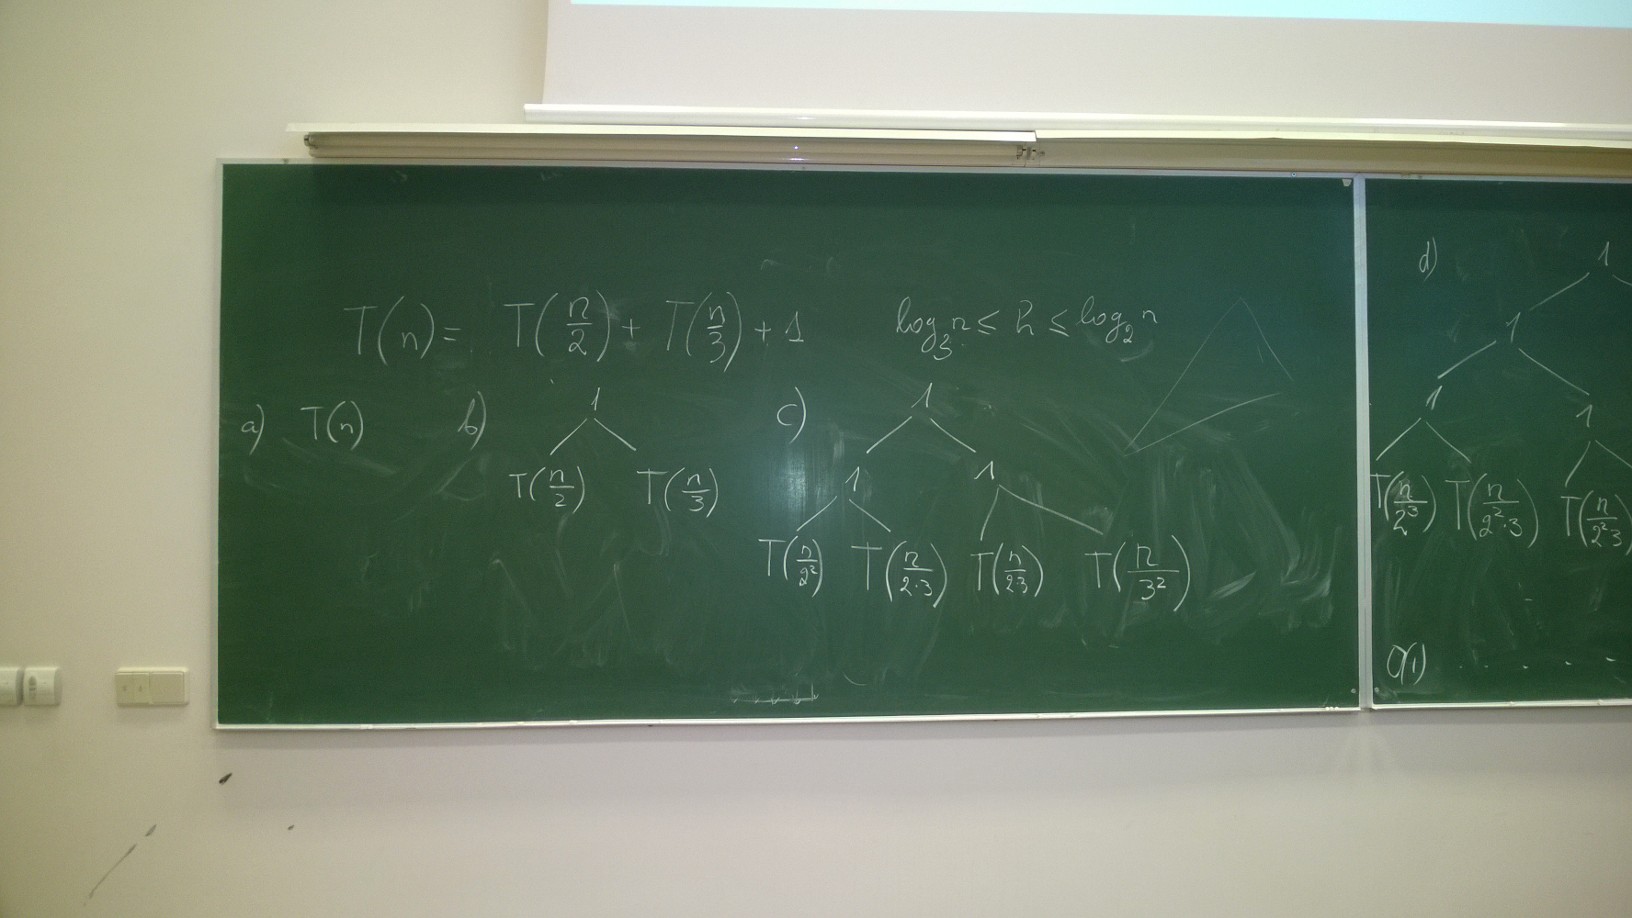 T(n) = T(n/2) + T(n/3) + 1
log₃n ≤ h ≤ log₂n
a) T(n)
b) 1
T(n/2) T(n/3)
c) 1
1 1
T(n/2²) T(n/2·3) T(n/2·3) T(n/3²)
d) 1
1
1 1
T(n/2³) T(n/2²·3) T(n/2²·3)
O(1) . . . .